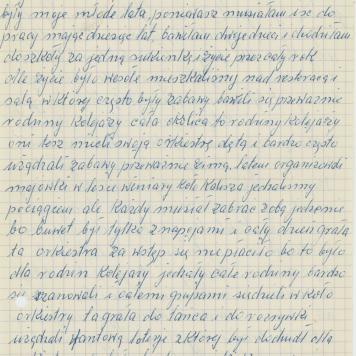 były moje młode lata, ponieważ musiałam iść do
pracy mając dziesięć lat bawiłam dwoje dzieci i chodziłam
do szkoły za jedną sukienkę i życie przez cały rok
ale życie było wesołe mieszkaliśmy nad restauracją i
salą w której często były zabawy bawili się przeważnie
rodziny kolejarzy cała okolica to rodziny kolejarzy
oni też mieli swoją orkiestrę dętą i bardzo często
urządzali zabawy przeważnie zimą, latem organizowali
majówki w lesie winiary koło Kalisza jechaliśmy
pociągiem ale każdy musiał zabrać z sobą jedzenie
bo bufet był tylko z napojami i cały dzień grała
ta orkiestra za wstęp się nie płaciło bo to było
dla rodzin kolejarzy jechały całe rodziny bardzo
się szanowali i całemi grupami siedzieli w koło
orkiestry ta grała do tańca i do rozrywki
urządzali fantową loterię z której był dochód dla